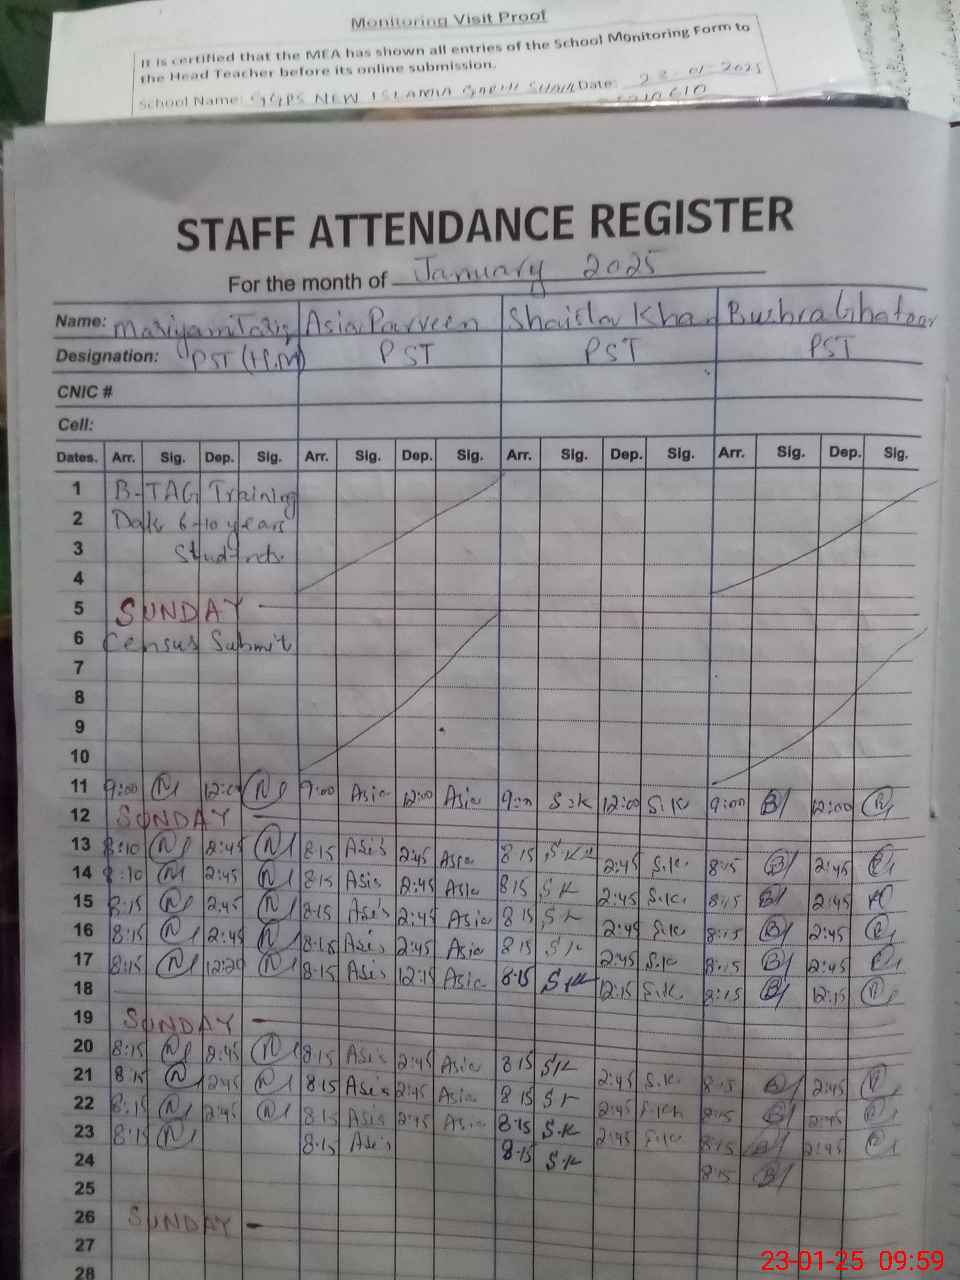 Monitoring Visit Proof
It is certified that the MEA has shown all entries of the School Monitoring Form to
the Head Teacher before its online submission.
School Name: GGPS NEW ISLAMIA Date: 23-01-2025
STAFF ATTENDANCE REGISTER
For the month of January 2025
Name: Asia Parveen Shaista Khan Bushra Ghafoor
Designation: PST (H.M) PST PST PST
CNIC #
Cell:
Dates. Arr. Sig. Dep. Sig. Arr. Sig. Dep. Sig. Arr. Sig. Dep. Sig. Arr. Sig. Dep. Sig.
1 B-TAG Training
2 6-10 years
3 Students
4
5 SUNDAY
6 Census Submit
7
8
9
10
11 9:00 12:00 9:00 Asia 12:00 Asia 9:00 S.K 12:00 S.K 9:00 B 12:00
12 SUNDAY
13 8:10 2:45 8:15 Asia 2:45 Asia 8:15 S.K 2:45 S.K. 8:15 B 2:45
14 8:10 2:45 8:15 Asia 2:45 Asia 8:15 S.K 2:45 S.K. 8:15 B 2:45
15 8:15 2:45 8:15 Asia 2:45 Asia 8:15 S.K 2:45 S.K 8:15 B 2:45
16 8:15 2:45 8:15 Asia 2:45 Asia 8:15 S.K 2:45 S.K 8:15 B 2:45
17 8:15 12:20 8:15 Asia 12:15 Asia 8:15 S.K 12:15 S.K. 8:15 B 12:15
18
19 SUNDAY
20 8:15 2:45 8:15 Asia 2:45 Asia 8:15 S.K 2:45 S.K. 8:15 B 2:45
21 8:15 2:45 8:15 Asia 2:45 Asia 8:15 S.K 2:45 S.K 8:15 B 2:45
22 8:15 2:45 8:15 Asia 2:45 Asia 8:15 S.K 2:45 S.K 8:15 B 2:45
23 8:15 8:15 Asia 8:15 S.K 8:15 B
24
25
26 SUNDAY
27
28
23-01-25 09:59